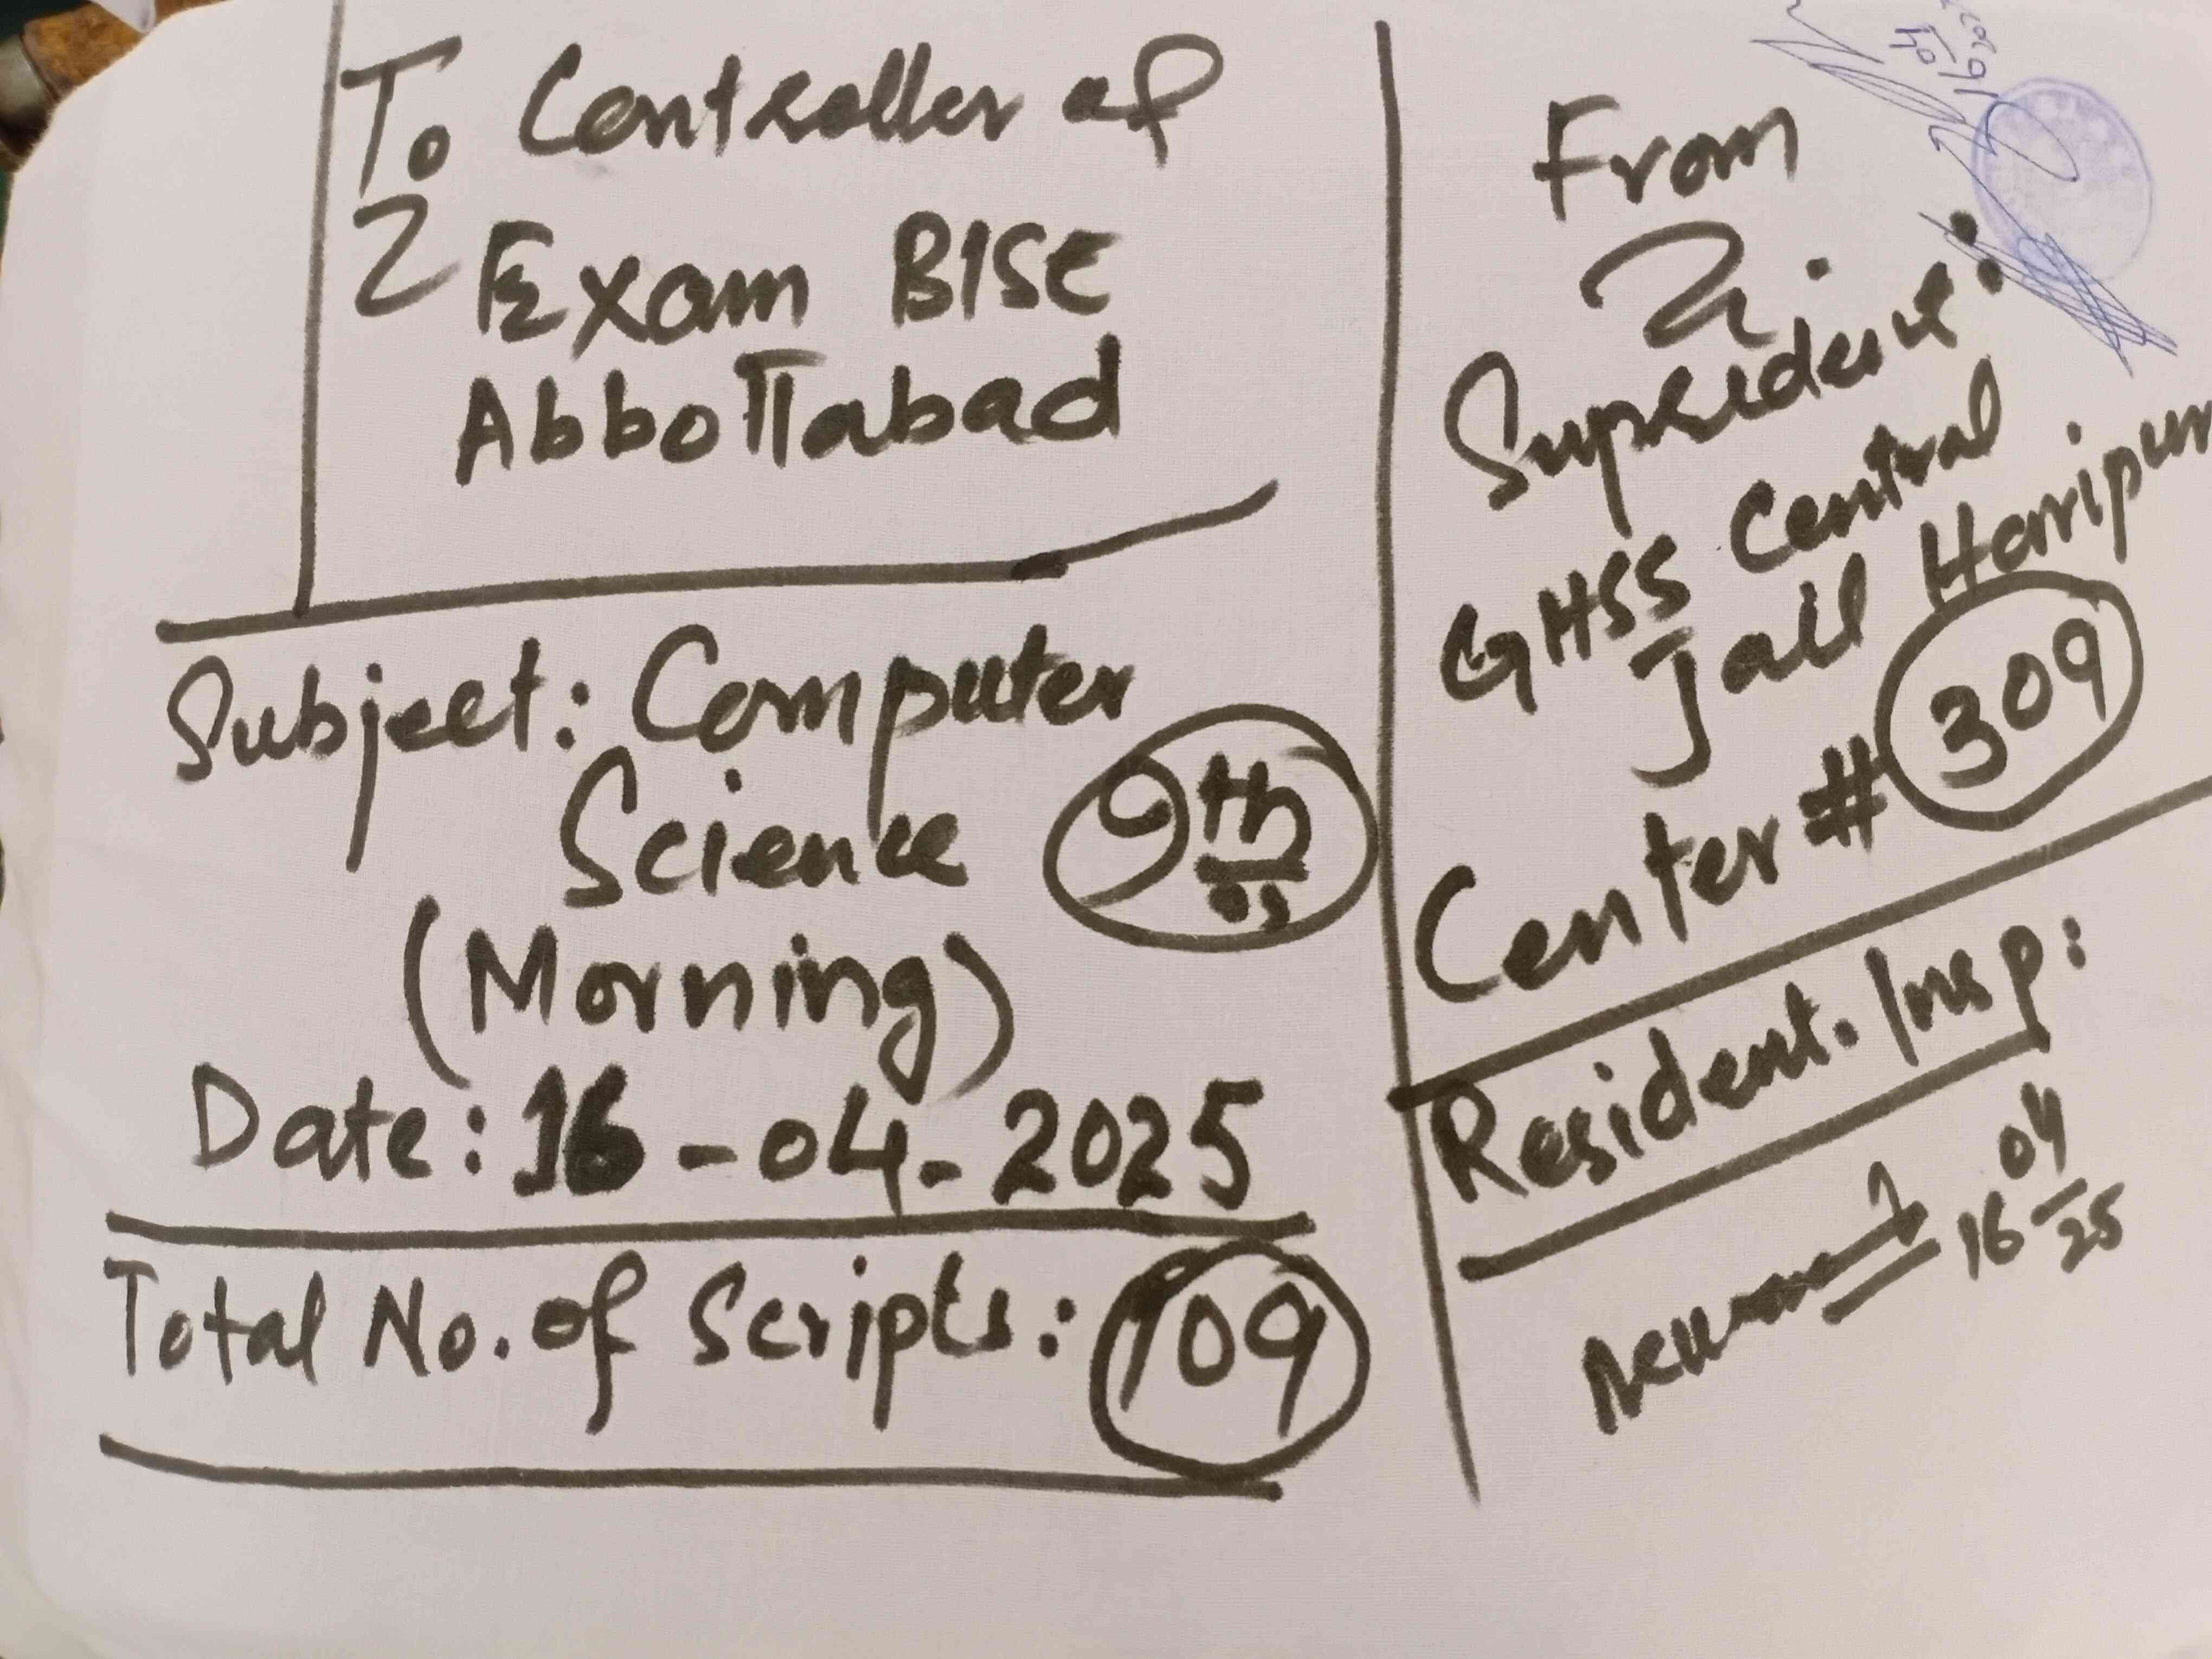 To Controller of
Exam BISE
Abbottabad
Subject: Computer
Science 9th
(Morning)
Date: 16-04-2025
Total No. of Scripts: 109
From
GHSS Central
Jail Haripur
Center # 309
Resident. Insp:
16 04
25